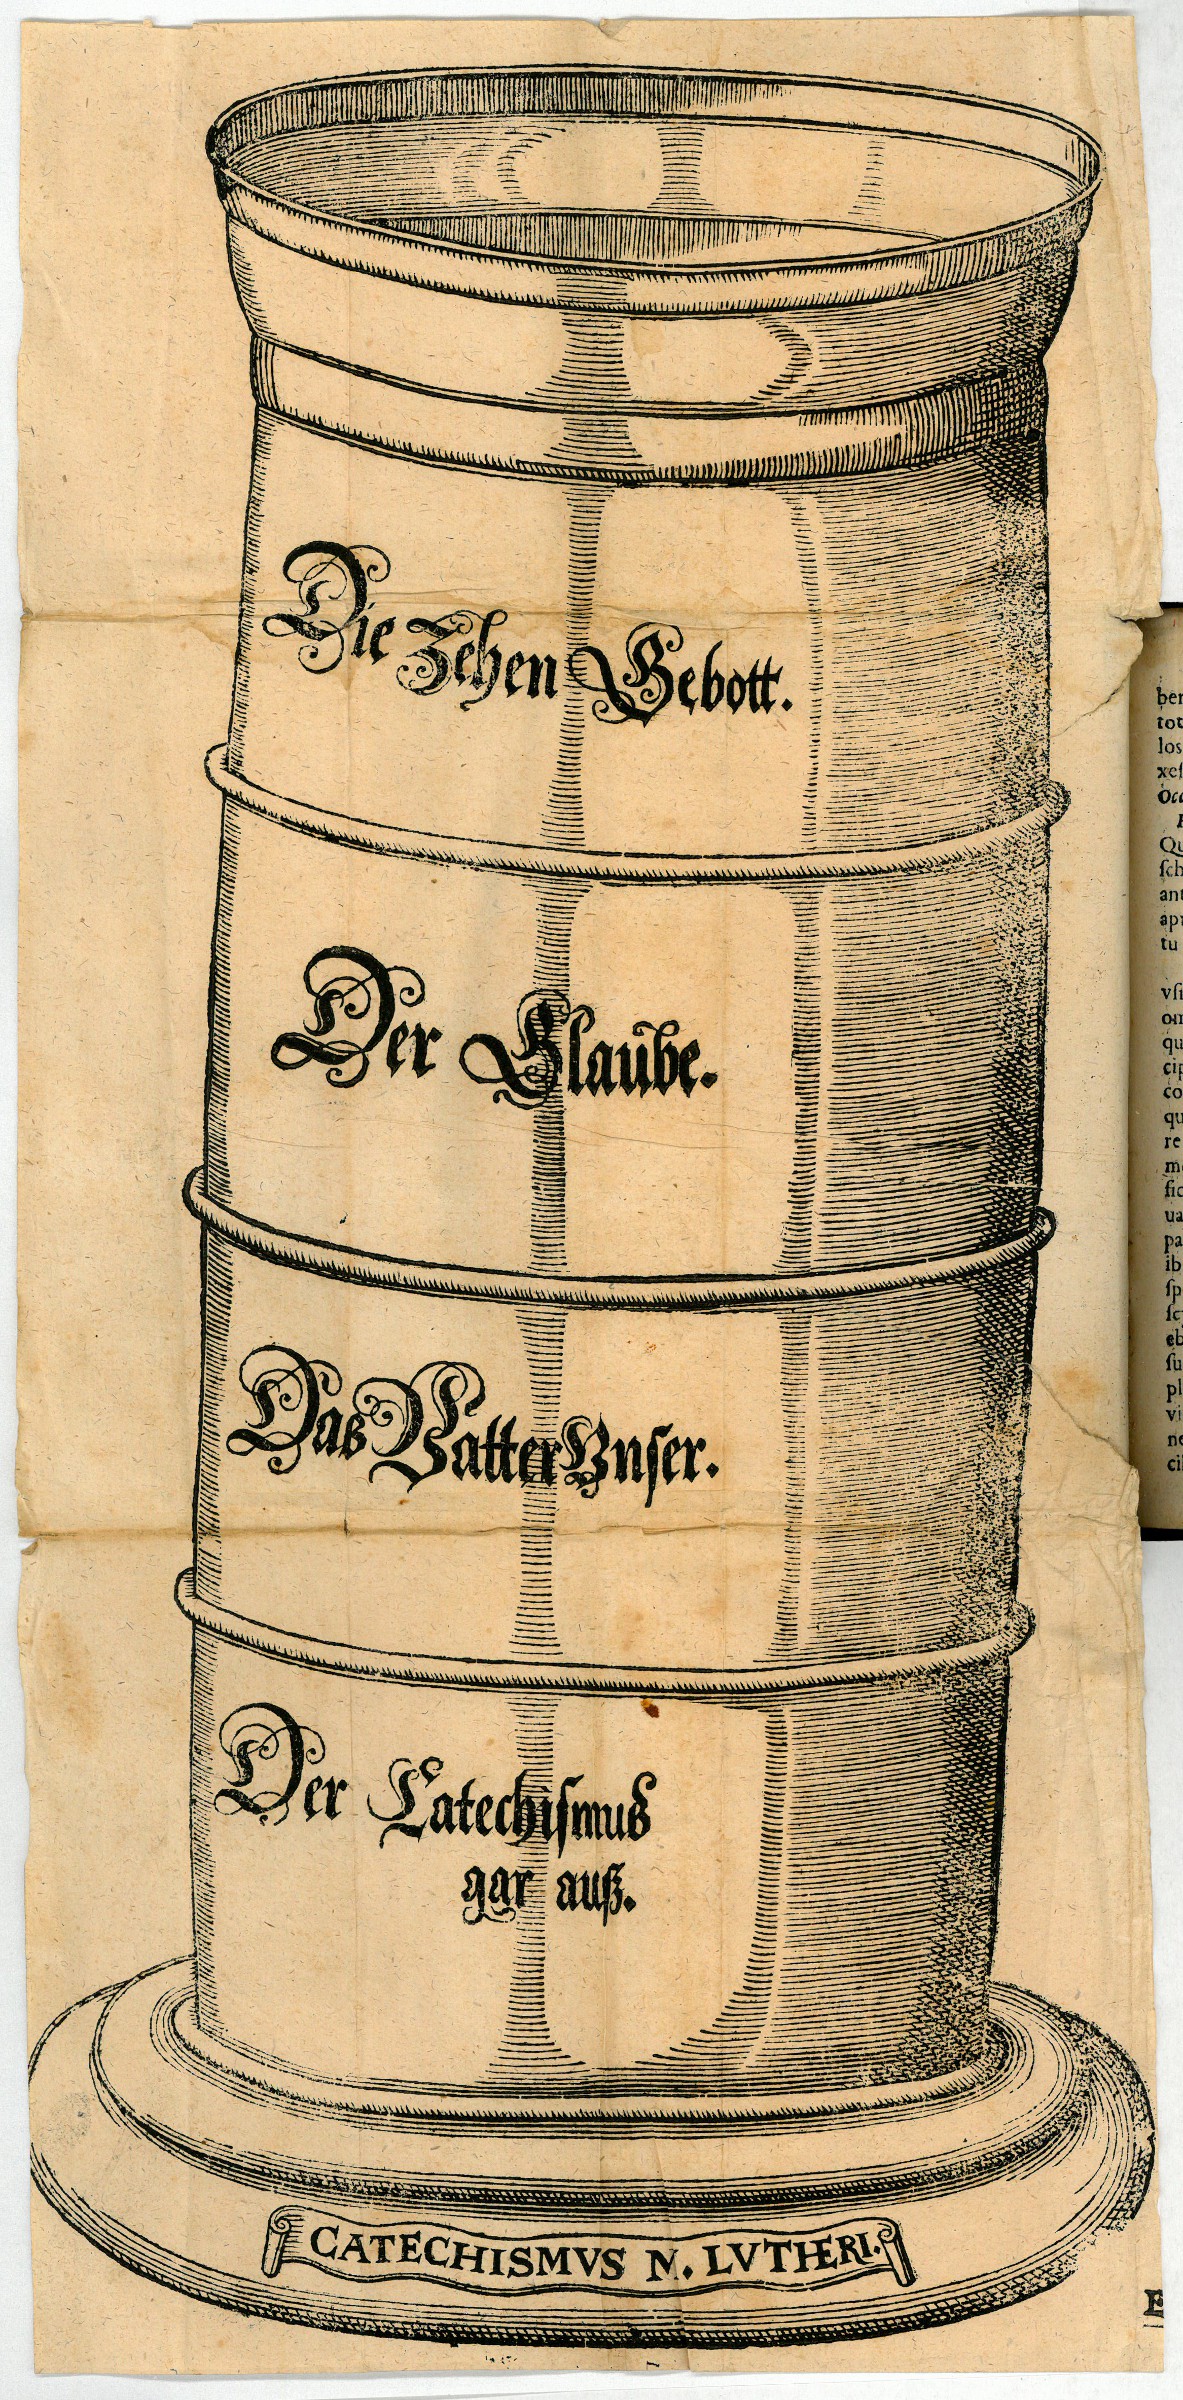 Die Zehen Gebott.
Der Glaube.
Das Vatter Vnser.
Der Catechismus
gar auß.
CATECHISMVS M. LVTHERI.
tot
los
xeſ
Occ
Qu
ſch
ant
apr
tu
qu
cip
co
qu
re
ſic
ua
pa
ib
ſp
eb
ſu
pl
vi
ne
E